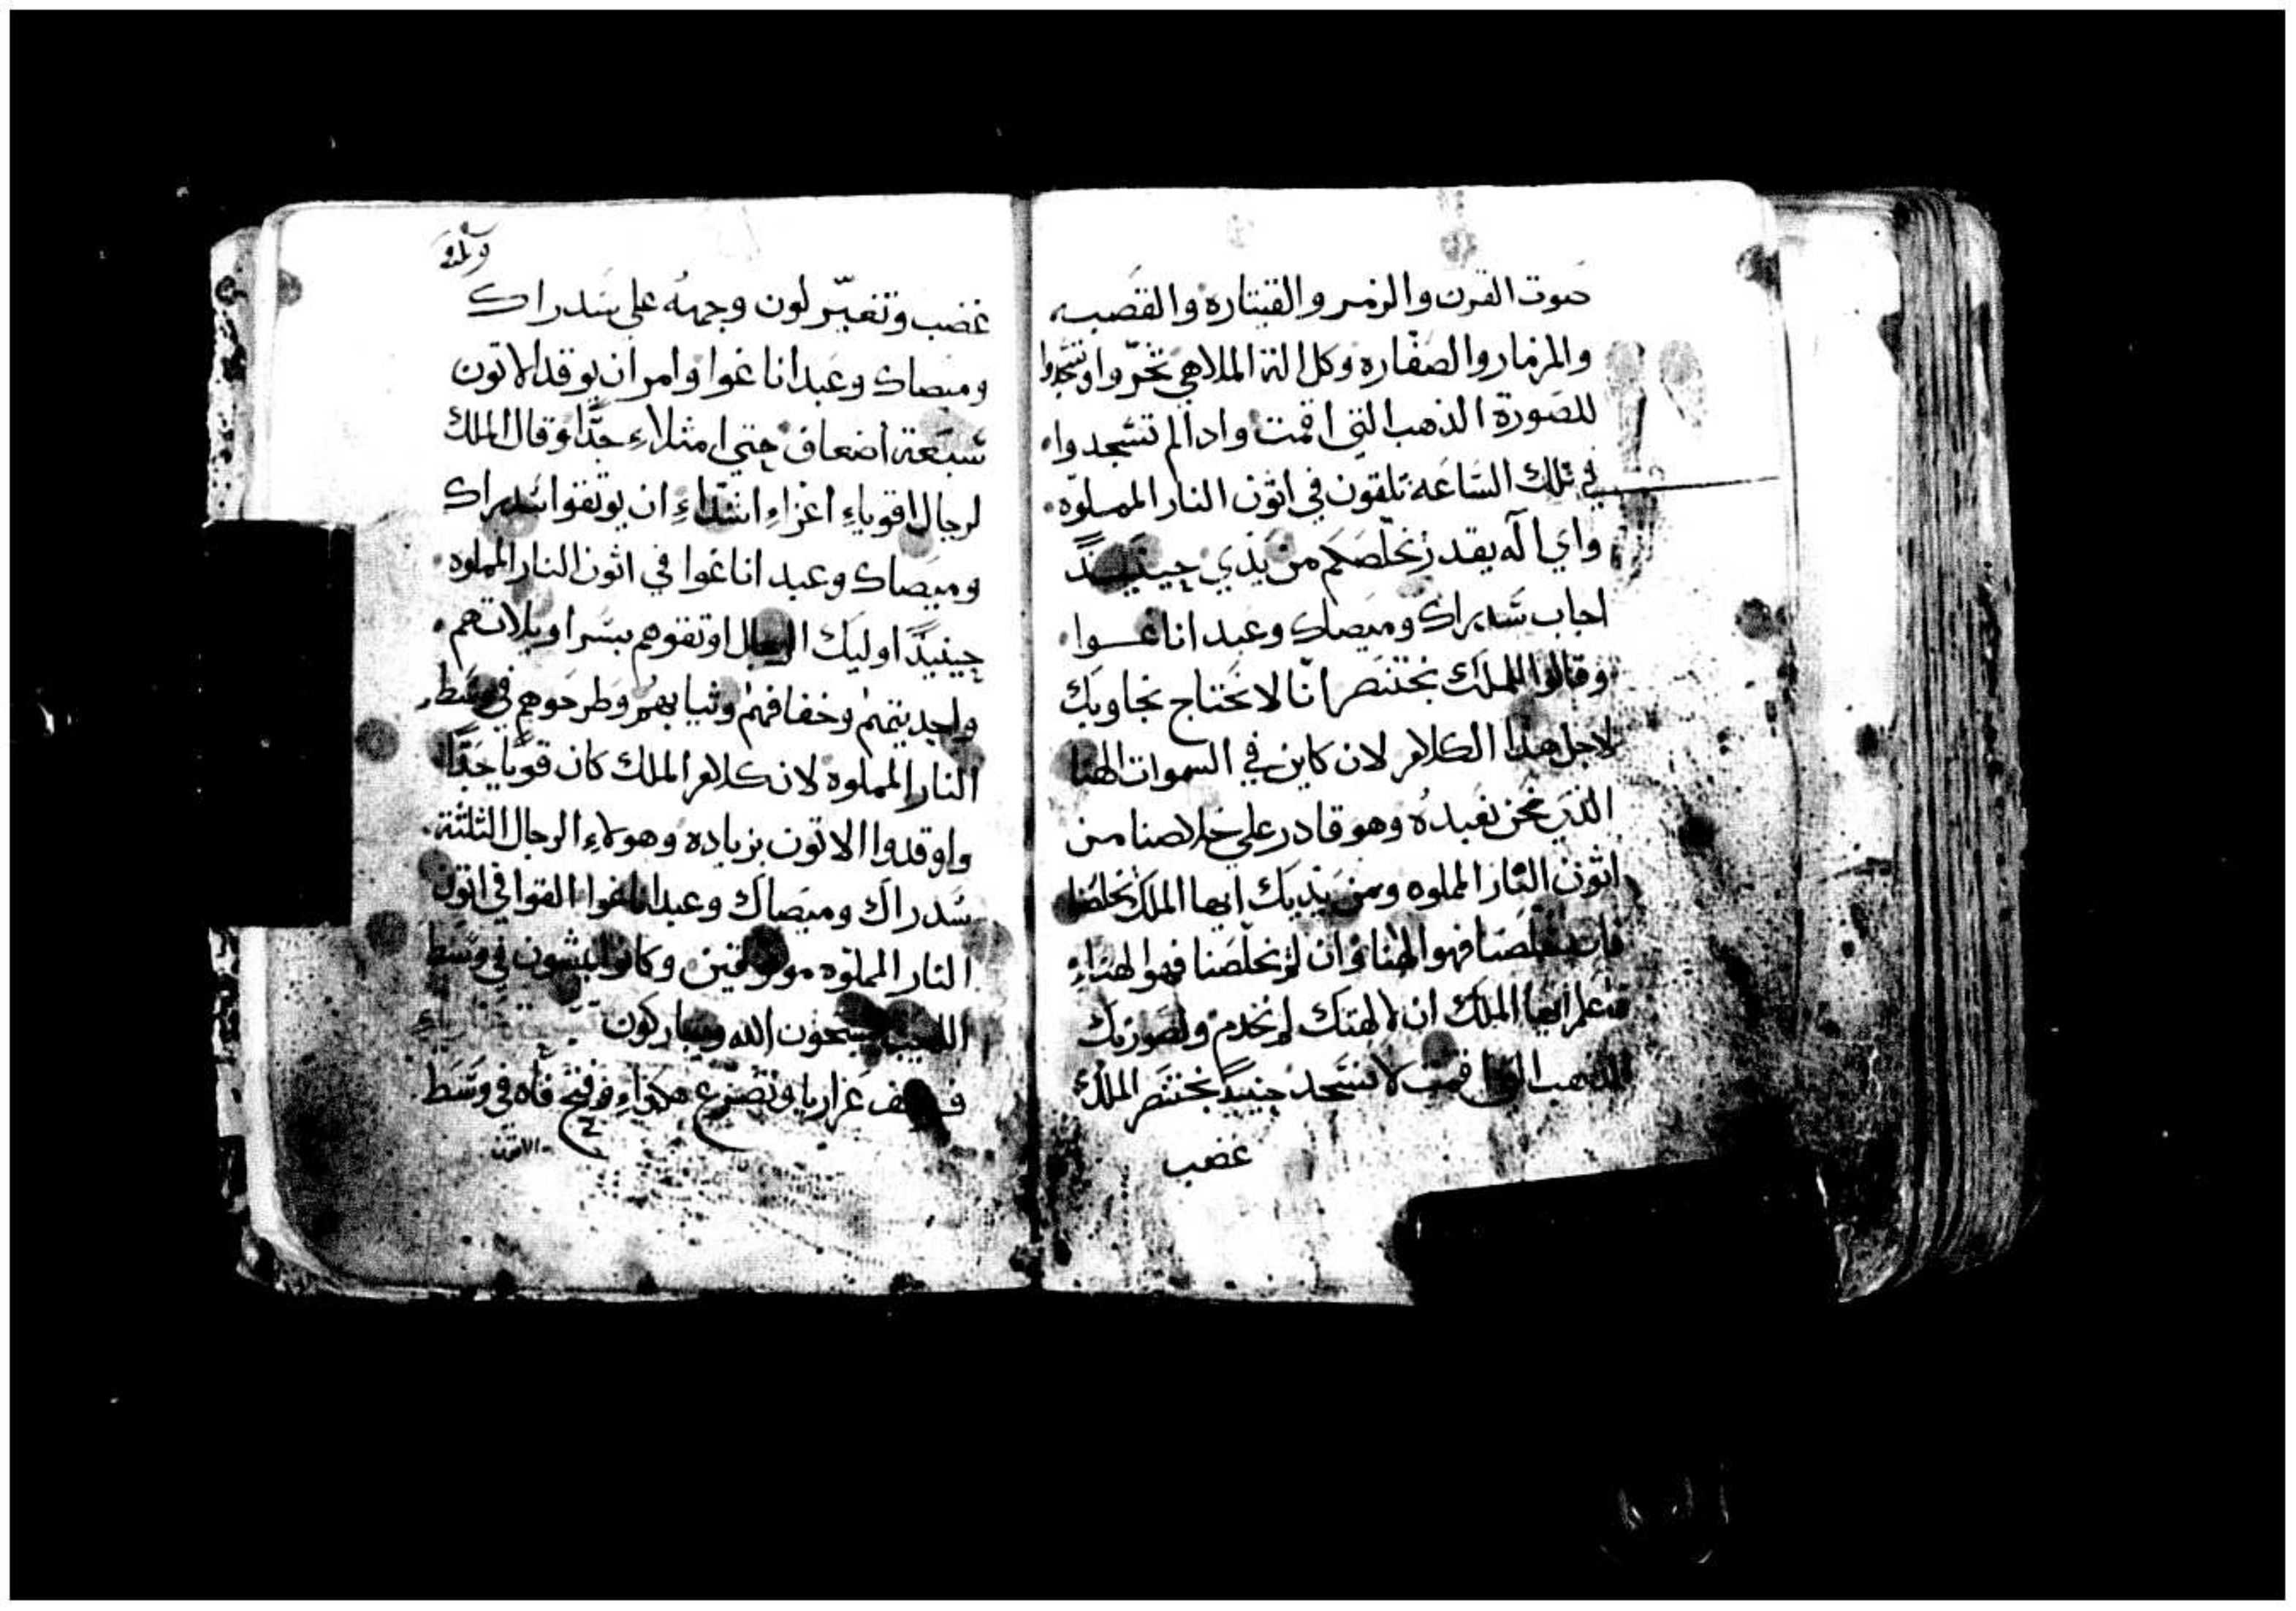 صوت القرن والزمر والقيتاره والقصبه
والمزمار والصفاره وكل الة الملاهي تخروا وتسجدوا
للصورة الذهب التي اقمت وادا لم تسجدوا
في تلك الساعه تلقون في اتون النار المملوه
واي اله يقدر يخلصكم من يدي حينيذ
اجاب سدراك وميصاك وعبد اناغوا
وقالوا للملك بختنصر انا لا نحتاج نجاوبك
لاجل هدا الكلام لان كاين في السموات الهنا
الذي نحن نعبده وهو قادر على خلاصنا من
اتون النار المملوه ومن يديك ايها الملك يخلصنا
فان خلصنا فهوا الهنا وان لم يخلصنا فهوا الهنا
فاعلم ايها الملك ان لالهتك لم نخدم ولصورتك
الدهب التي اقمت لا نسجد حينيذ بختنصر الملك
غضب
غضب وتغير لون وجهه على سدراك
وميصاك وعبد اناغوا وامر ان يوقد الاتون
سبعة اضعاف حتي امتلاء جدا وقال الملك
لرجال اقوياء اعزاء اشداء ان يوثقوا سدراك
وميصاك وعبد اناغوا في اتون النار المملوه
حينيذ اوليك الرجال اوتقوهم بسراويلاتهم
وخفافهم وثيابهم وطرحوهم في وسط
النار المملوه لان كلام الملك كان قويا جدا
واوقدوا الاتون بزياده وهولاء الرجال الثلثة
سدراك وميصاك وعبد اناغوا القوا في اتون
النار المملوه موثوقين وكانوا يمشون في وسط
اللهيب يسبحون الله ويباركون
فوقف عزاريا وتضرع هكذاء وفتح فاه في وسط
الاتون